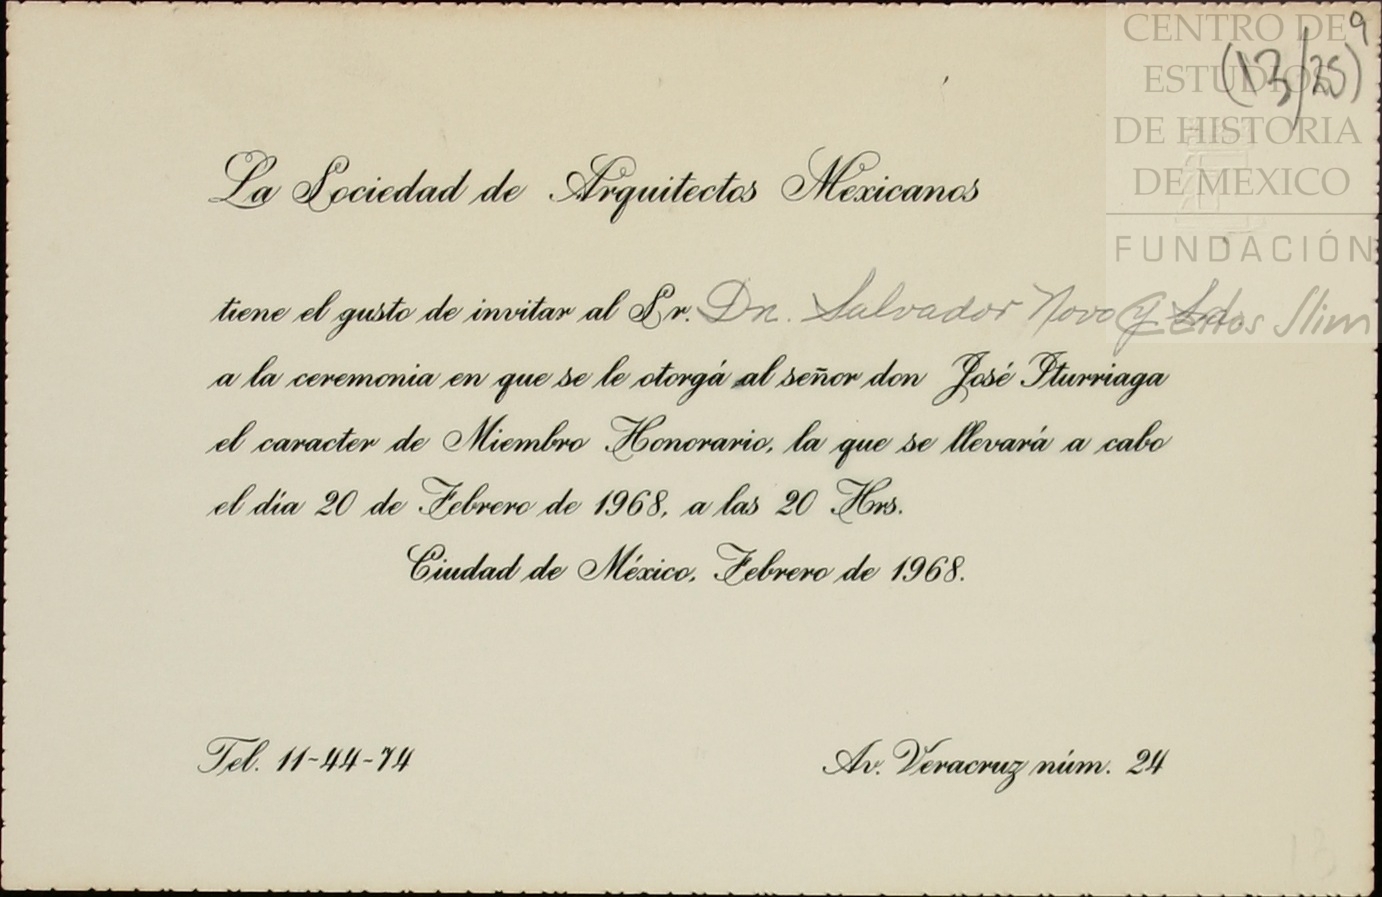 9
(13/25)
CENTRO DE
ESTUDIOS
DE HISTORIA
DE MEXICO
FUNDACIÓN
Carlos Slim
La Sociedad de Arquitectos Mexicanos
tiene el gusto de invitar al Sr. Dn. Salvador Novo y Sra.
a la ceremonia en que se le otorgá al señor don José Iturriaga
el caracter de Miembro Honorario, la que se llevará a cabo
el día 20 de Febrero de 1968, a las 20 Hrs.
Ciudad de México, Febrero de 1968.
Tel. 11-44-74
Av. Veracruz núm. 24
13